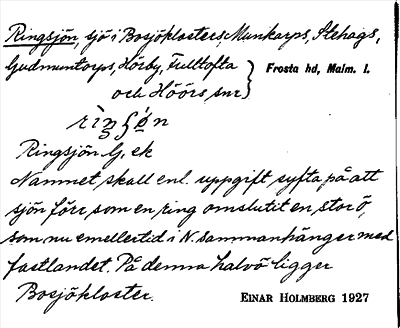 Ringsjön, sjö i Bosjöklosters, Munkarps, Stehags,
Gudmuntorps, Hörby, Fulltofta
och Höörs snr
Frosta hd, Malm. l.
Ringsjön G, ek
Namnet skall enl. uppgift syfta på att
sjön förr som en ring omslutit en stor ö,
som nu emellertid i N. sammanhänger med
fastlandet. På denna halvö ligger
Bosjökloster.
EINAR HOLMBERG 1927